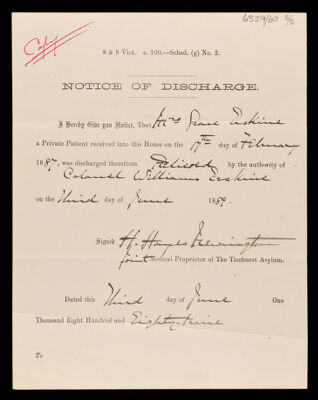 Copy
6329/60 5/5
8 & 9 Vict. c. 100.—Sched. (g) No. 2.
NOTICE OF DISCHARGE.
I Hereby Give you Notice, That Mrs Grace Erskine
a Private Patient received into this House on the 17th day of February
1887, was discharged therefrom Relieved by the authority of
Colonel Williams Erskine
on the Third day of June 1889.
Signed H. Hayes Newington
Joint Medical Proprietor of The Ticehurst Asylum.
Dated this Third day of June One
Thousand Eight Hundred and Eighty-Nine
To